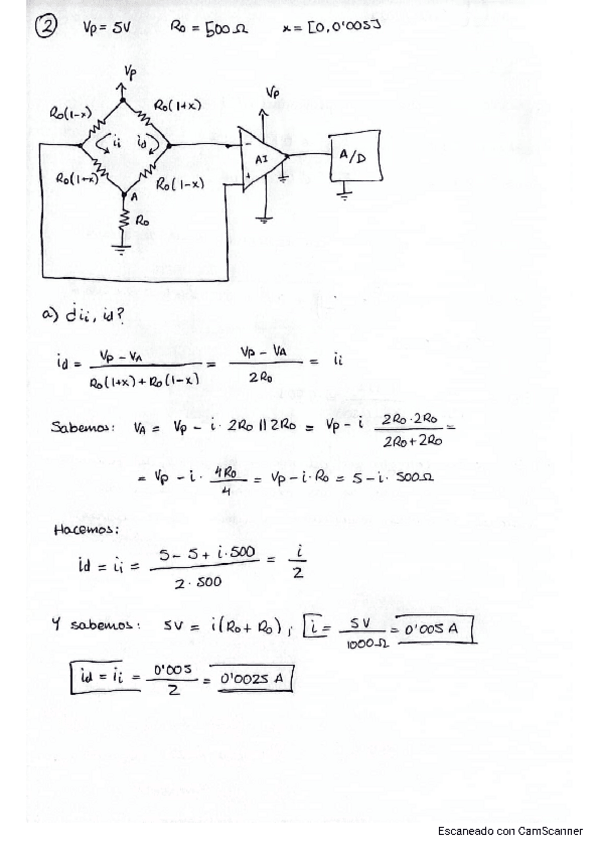 ② Vp = 5V R0 = 500Ω x = [0, 0'005]
Vp
R0(1-x) R0(1+x)
Vp
ii id
- AI +
A/D
R0(1+x) R0(1-x)
A
R0
a) ¿ii, id?
id = (Vp - VA) / (R0(1+x) + R0(1-x)) = (Vp - VA) / 2R0 = ii
Sabemos: VA = Vp - i · 2R0 || 2R0 = Vp - i (2R0 · 2R0) / (2R0 + 2R0) =
= Vp - i · 4R0 / 4 = Vp - i · R0 = 5 - i · 500Ω
Hacemos:
id = ii = (5 - 5 + i · 500) / (2 · 500) = i / 2
Y sabemos: 5V = i(R0 + R0); i = 5V / 1000Ω = 0'005 A
id = ii = 0'005 / 2 = 0'0025 A
Escaneado con CamScanner